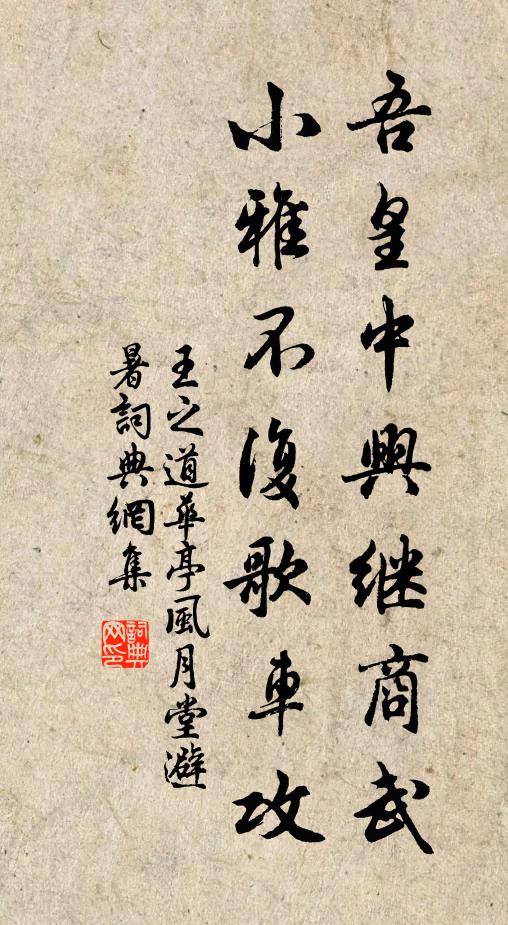 吾皇中興继商武
小雅不復歌車攻
王之道華亭風月堂避
暑詞典網集
詞典
网印